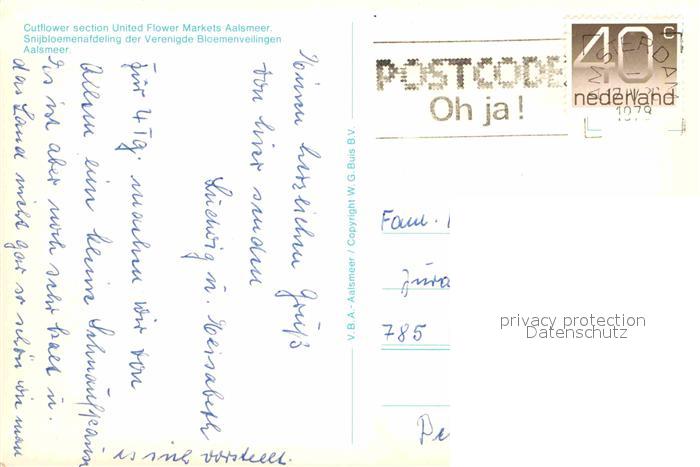 Cutflower section United Flower Markets Aalsmeer.
Snijbloemenafdeling der Verenigde Bloemenveilingen
Aalsmeer.
Einen herzlichen Gruß
von hier senden
Ludwig u. Elisabeth
Für 4 Tg. machen wir von
allem eine kleine Schnaufpause
Es ist aber noch sehr kalt u.
das Land nicht gar so schön wie man
es sich vorstellt.
V.B.A.-Aalsmeer / Copyright W.G. Buis B.V.
POSTCODE
Oh ja!
40 c
nederland
AMSTERDAM
1979
Fam.
785
privacy protection
Datenschutz